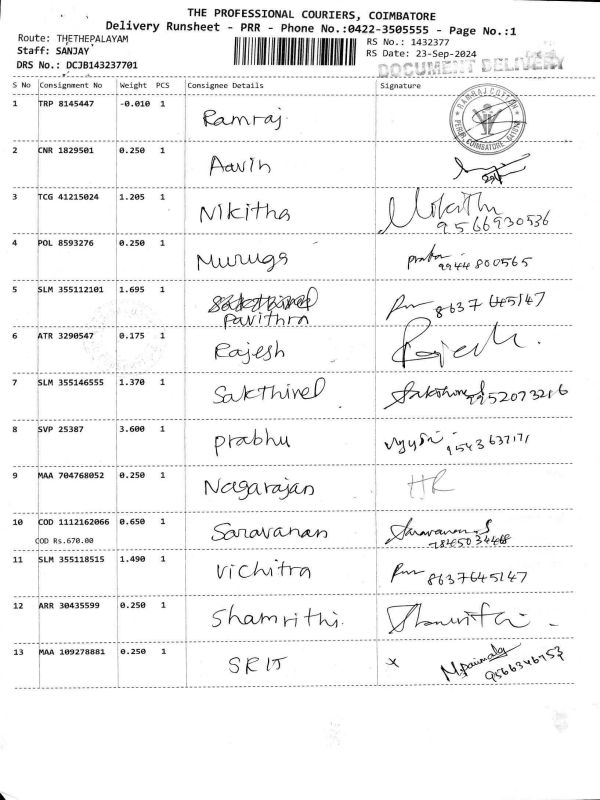 THE PROFESSIONAL COURIERS, COIMBATORE
Delivery Runsheet - PRR - Phone No.:0422-3505555 - Page No.:1
Route: THETHEPALAYAM
RS No.: 1432377
Staff: SANJAY
RS Date: 23-Sep-2024
DRS No.: DCJB143237701
DOCUMENT DELIVERY
S No Consignment No Weight PCS Consignee Details Signature
1 TRP 8145447 -0.010 1 Ramraj
RAMRAJ COTTON
PERUR, COIMBATORE
2 CNR 1829501 0.250 1 Aavin
3 TCG 41215024 1.205 1 Nikitha Nikithu
9566930536
4 POL 8593276 0.250 1 Muruga
9944800565
5 SLM 355112101 1.695 1 Sakthivel 8637645147
Pavithra
6 ATR 3290547 0.175 1 Rajesh Rajesh
7 SLM 355146555 1.370 1 Sakthivel 9952073216
8 SVP 25387 3.600 1 Prabhu
9543637171
9 MAA 704768052 0.250 1 Nagarajan HR
10 COD 1112162066 0.650 1 Saravanan Saravanan.S
COD Rs.670.00
11 SLM 355118515 1.490 1 Vichitra 8637645147
12 ARR 30435599 0.250 1 Shamrithi.
13 MAA 109278881 0.250 1 SRIT x
9566346753